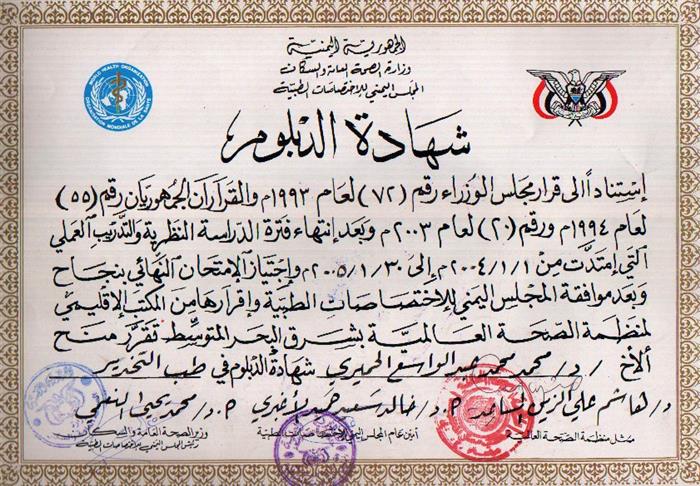 الجمهورية اليمنية
وزارة الصحة العامة والسكان
المجلس اليمني للاختصاصات الطبية
WORLD HEALTH ORGANIZATION
ORGANISATION MONDIALE DE LA SANTÉ
شهادة الدبلوم
إستناداً الى قرار مجلس الوزراء رقم (٧٢) لعام ١٩٩٣م والقراران الجمهوريان رقم (٥٥)
لعام ١٩٩٤م ورقم (٢٠) لعام ٢٠٠٣م وبعد إنتهاء فترة الدراسة النظرية والتدريب العملي
التي إمتدت من ٢٠٠٤/١/١م إلى ٢٠٠٥/١/٣٠م وإجتياز الإمتحان النهائي بنجاح
وبعد موافقة المجلس اليمني للإختصاصات الطبية وإقرارها من المكتب الإقليمي
لمنظمة الصحة العالمية بشرق البحر المتوسط تقرر منح
ألاخ / د/ محمد محمد عبد الواسع الحميري شهادة الدبلوم في طب التخدير
د/ هاشم علي الزين د/ خالد سعيد د/ محمد يحيى النعمي
ممثل منظمة الصحة العالمية أمين عام المجلس اليمني للإختصاصات الطبية وزير الصحة العامة والسكان
رئيس المجلس اليمني للإختصاصات الطبية